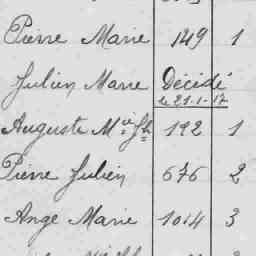 Pierre Marie 149 1
Julien Marie Décédé
le 21-1-17
Auguste Mie Jh 192 1
Pierre Julien 676 2
Ange Marie 1014 3